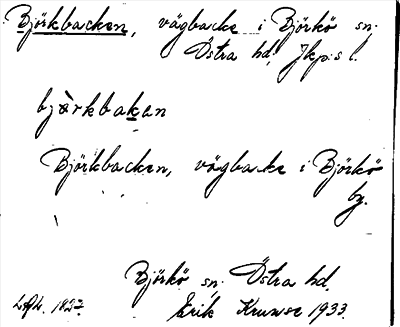 Björkbacken, vägbacke i Björkö sn;
Östra hd. Jkp:s l.
bjärkbakan
Björkbacken, vägbacke i Björkö
by.
Björkö sn, Östra hd,
Erik 1933.